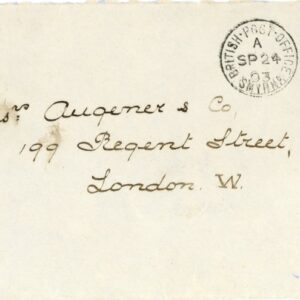 BRITISH·POST·OFFICE
A
SP 24
03
SMYRNA
Augener & Co,
199 Regent Street,
London. W.